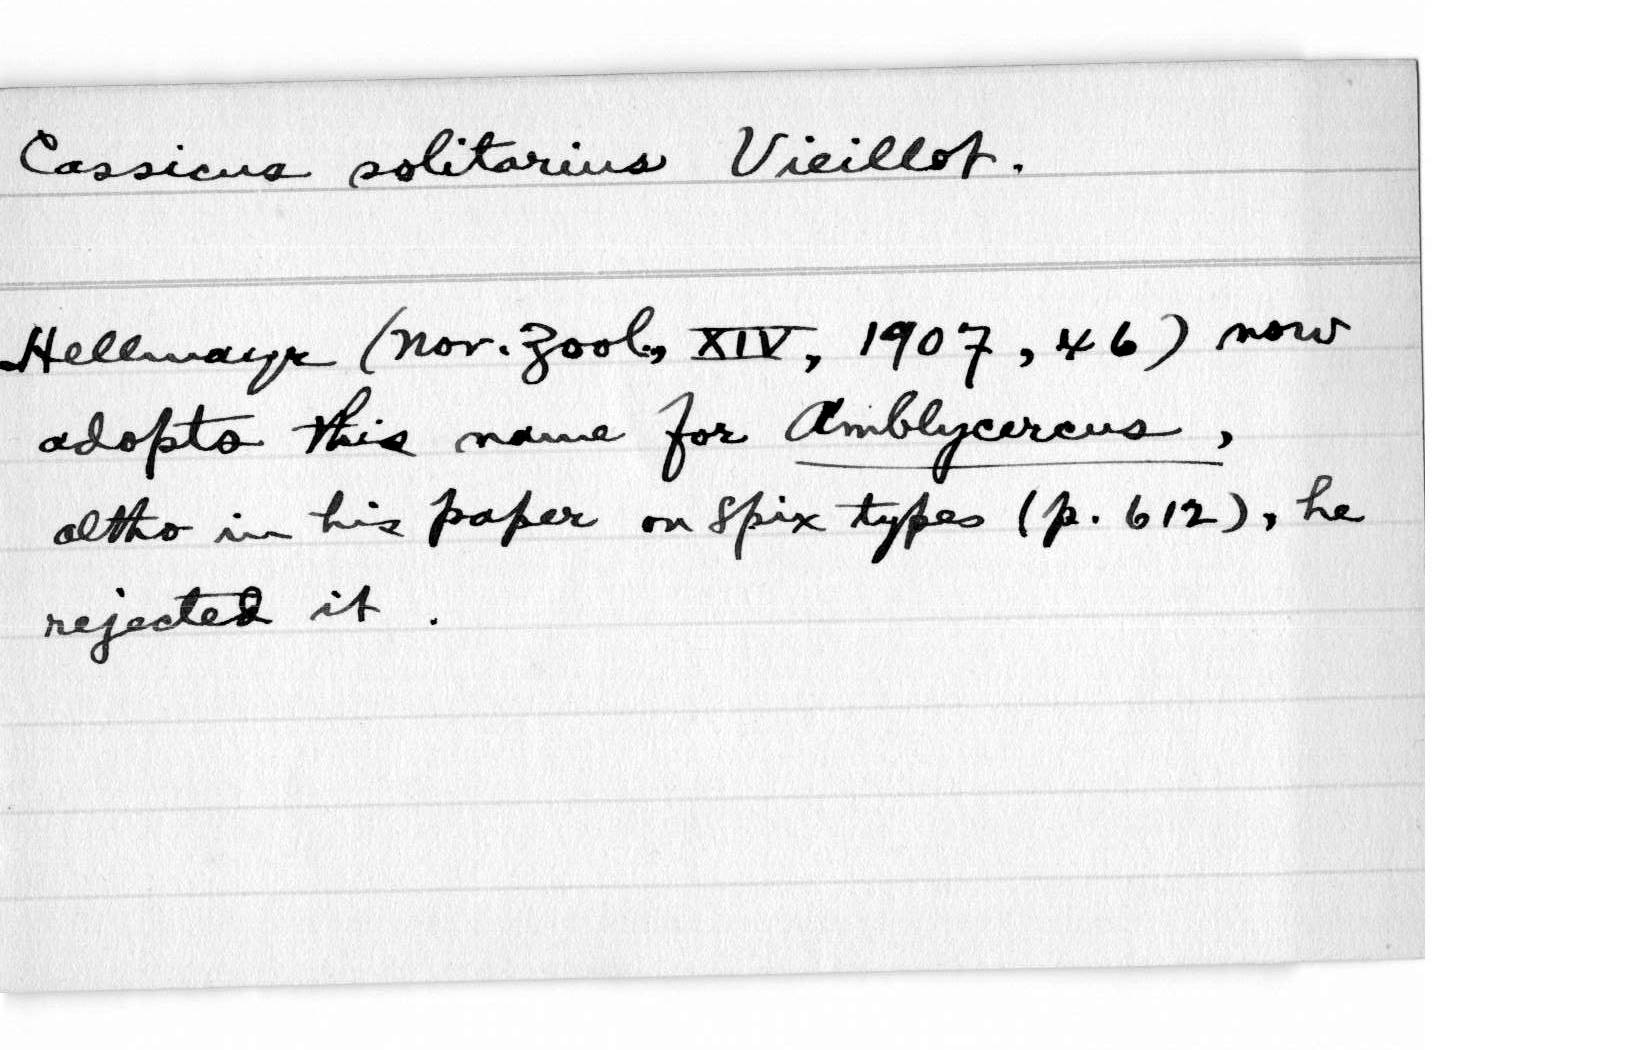 Cassicus solitarius Vieillot.
Hellmayr (Nov. Zool., XIV, 1907, 46) now
adopts this name for Amblycercus,
altho in his paper on Spix types (p. 612), he
rejected it.